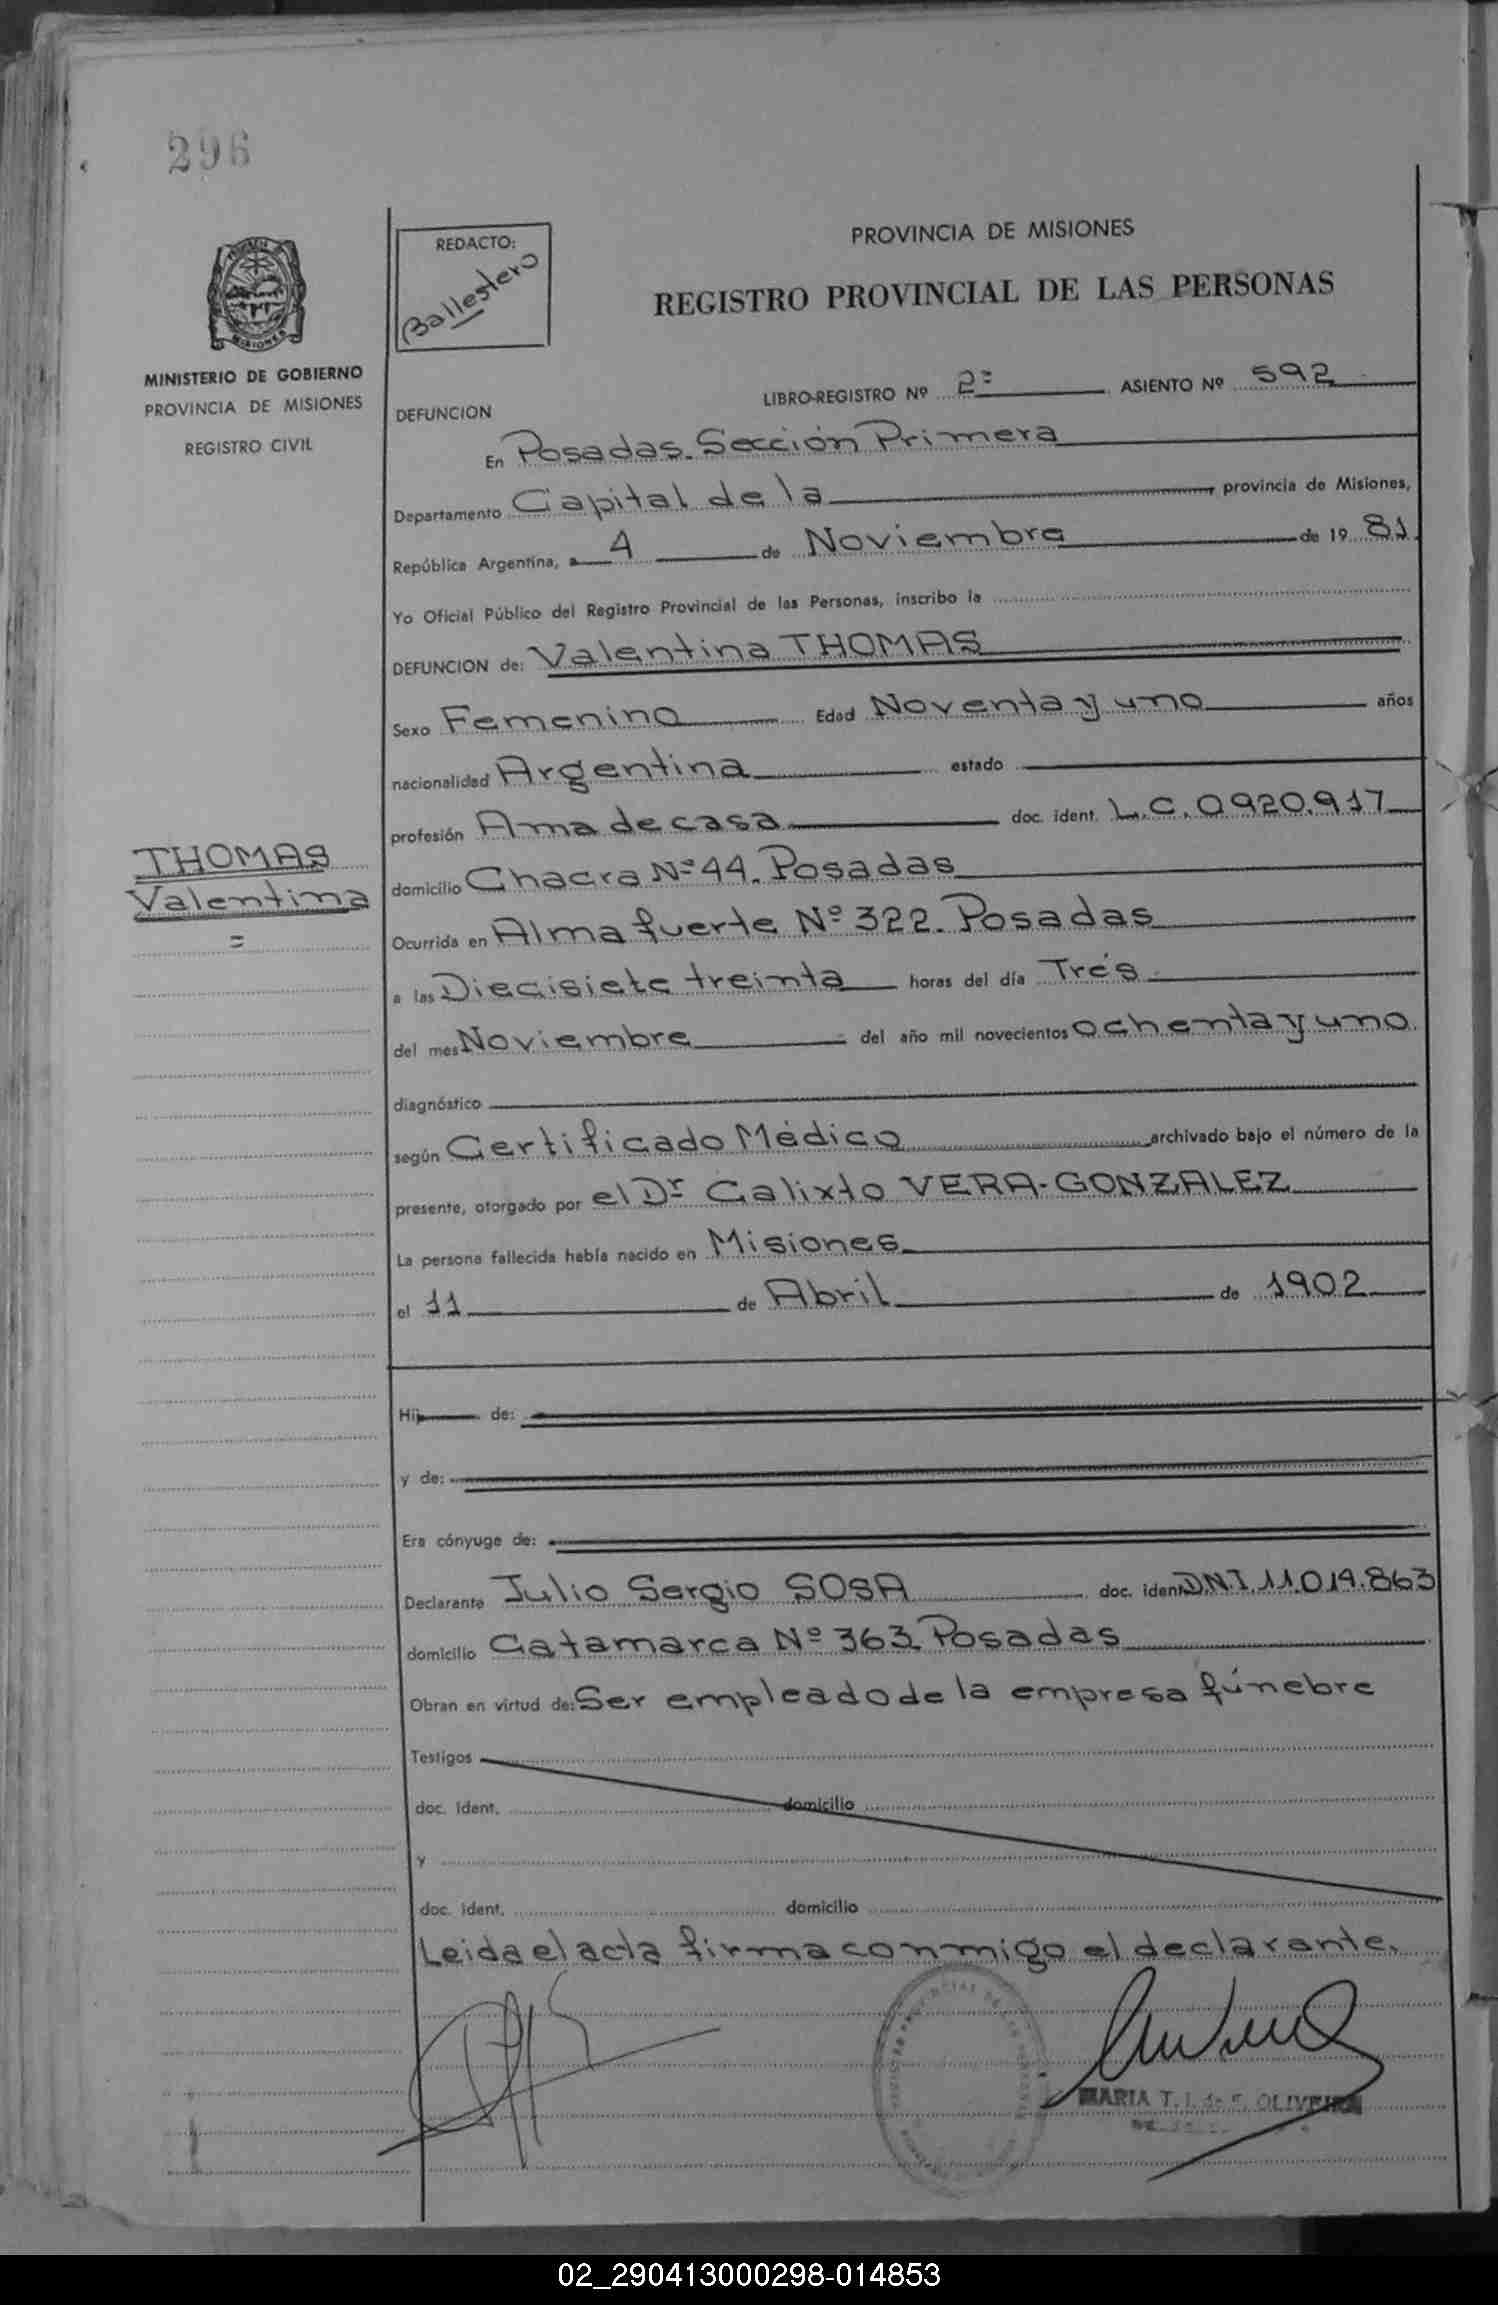 296
MISIONES
MINISTERIO DE GOBIERNO
PROVINCIA DE MISIONES
REGISTRO CIVIL
REDACTO:
Ballestero
PROVINCIA DE MISIONES
REGISTRO PROVINCIAL DE LAS PERSONAS
LIBRO-REGISTRO Nº 2º ASIENTO Nº 592
DEFUNCION
En Posadas. Sección Primera
Departamento Capital de la provincia de Misiones,
República Argentina, a 4 de Noviembre de 19 81
Yo Oficial Público del Registro Provincial de las Personas, inscribo la
DEFUNCION de: Valentina THOMAS
Sexo Femenino Edad Noventa y uno años
nacionalidad Argentina estado
profesión Ama de casa doc. ident. L.C. 0920.917
THOMAS
Valentina
domicilio Chacra Nº 44. Posadas
Ocurrida en Alma fuerte Nº 322. Posadas
a las Diecisiete treinta horas del día Trés
del mes Noviembre del año mil novecientos ochenta y uno.
diagnóstico
según Certificado Médico archivado bajo el número de la
presente, otorgado por el Dr Calixto VERA-GONZALEZ
La persona fallecida había nacido en Misiones
el 11 de Abril de 1902
Hij de:
y de:
Era cónyuge de:
Declarante Julio Sergio SOSA doc. ident. D.N.I. 11.019.863
domicilio Catamarca Nº 363. Posadas
Obran en virtud de: Ser empleado de la empresa fúnebre
Testigos
doc. ident. domicilio
y
doc. ident. domicilio
Leida el acta firma conmigo el declarante.
MARIA T. I. de F. OLIVEIRA
02_290413000298-014853